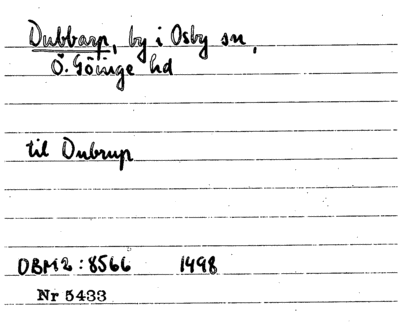 Dubbarp, by i Osby sn,
Ö. Göinge hd
til Dubrup
DBM2:8566 1498
Nr 5433